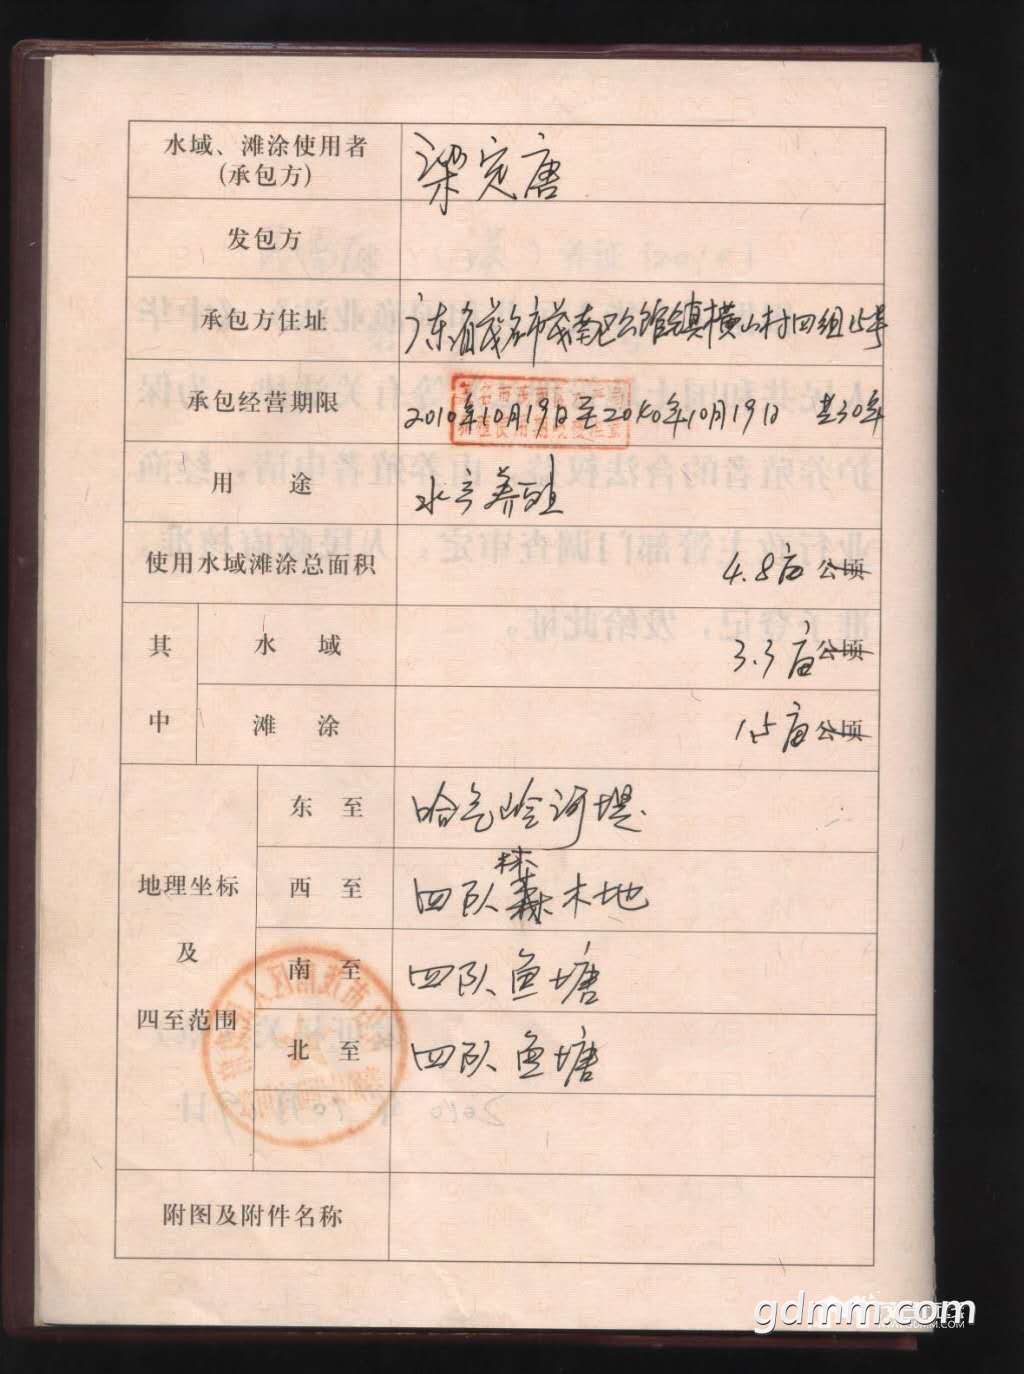 水域、滩涂使用者
(承包方)
梁宪唐
发包方
承包方住址
广东省茂名市茂南区公馆镇横山村四组15号
承包经营期限
2010年10月19日至2040年10月19日 共30年
用 途
水产养殖
使用水域滩涂总面积
4.8亩 公顷
其
中
水 域
3.3亩 公顷
滩 涂
1.5亩 公顷
地理坐标
及
四至范围
东 至
哈气岭河堤.
西 至
林
四队 木地
南 至
四队鱼塘
北 至
四队鱼塘
附图及附件名称
gdmm.com